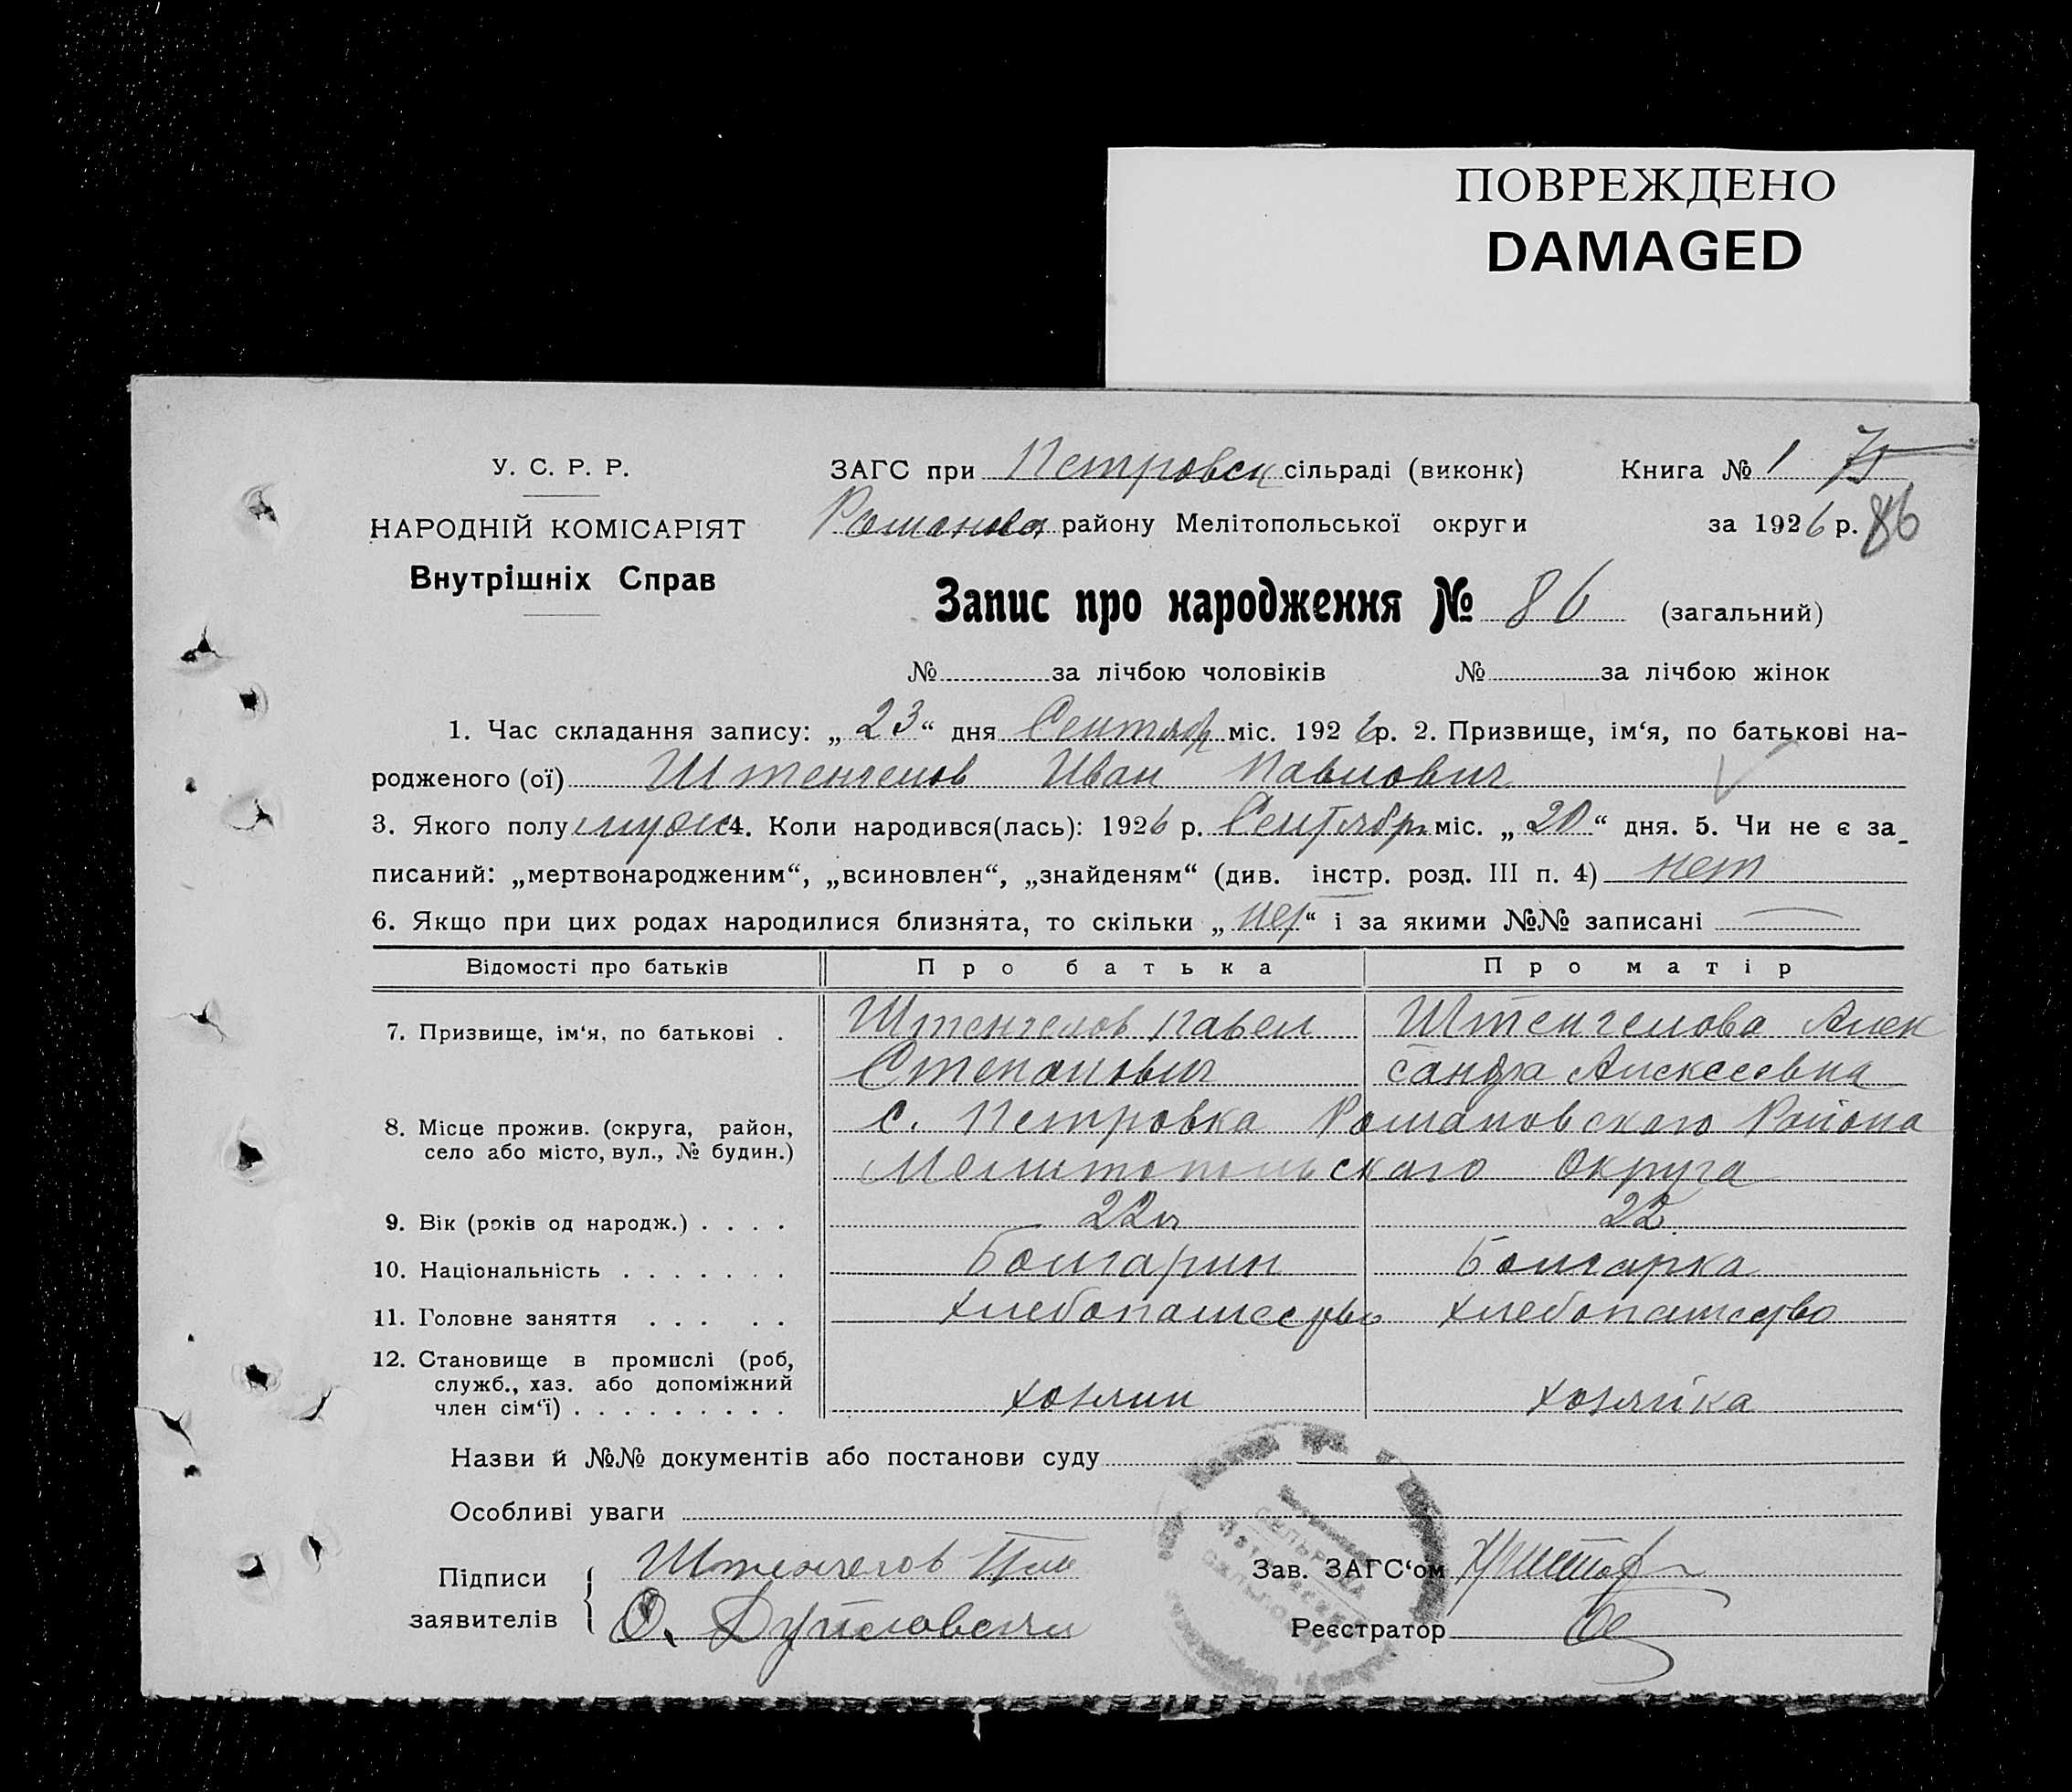 ПОВРЕЖДЕНО
DAMAGED
У. С. Р. Р.
НАРОДНІЙ КОМІСАРІЯТ
Внутрішніх Справ
ЗАГС при Петровск сільраді (виконк) Книга № 1 75
Романовск району Мелітопольської округи за 1926 р. 86
Запис про народження № 86 (загальний)
№ за лічбою чоловіків № за лічбою жінок
1. Час складання запису: „23“ дня Сентябр міс. 1926 р. 2. Призвище, ім‘я, по батькові на-
родженого (ої) Штенгелов Иван Павлович
3. Якого полу мужс 4. Коли народився(лась): 1926 р. Сентября міс. „20“ дня. 5. Чи не є за-
писаний: „мертвонародженим“, „всиновлен“, „знайденям“ (див. інстр. розд. III п. 4) нет
6. Якщо при цих родах народилися близнята, то скільки „нет“ і за якими №№ записані —
Відомості про батьків Про батька Про матір
7. Призвище, ім‘я, по батькові . Штенгелов Павел Штенгелова Алек
Степанович сандра Алексеевна
8. Місце прожив. (округа, район, с. Петровка Романовского Района
село або місто, вул., № будин.) Мелитопольского Округа
9. Вік (років од народж.) . . . . 22 л 22
10. Національність . . . . . . . Болгарин Болгарка
11. Головне заняття . . . . . Хлебопашество Хлебопашество
12. Становище в промислі (роб,
служб., хаз. або допоміжний
член сім‘ї) . . . . . . . . . Хозяин Хозяйка
Назви й №№ документів або постанови суду
Особливі уваги
Підписи Штенгелов Зав. ЗАГС‘ом
заявителів О. Реєстратор